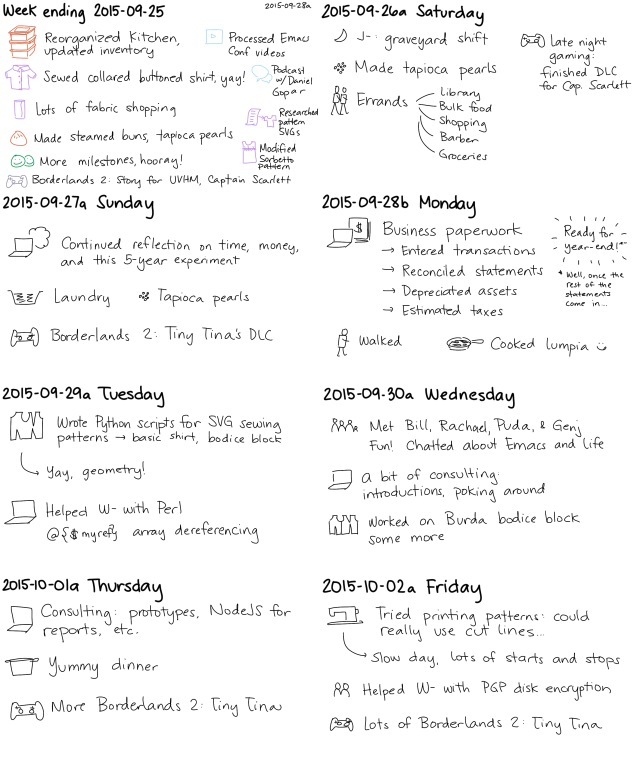 Week ending 2015-09-25
2015-09-28a
Reorganized Kitchen,
updated inventory
Processed Emacs
Conf videos
Sewed collared buttoned shirt, yay!
Podcast
w/ Daniel
Gopar
Lots of fabric shopping
Researched
pattern
SVGs
Made steamed buns, tapioca pearls
Modified
Sorbetto
pattern
More milestones, hooray!
Borderlands 2: Story for UVHM, Captain Scarlett
2015-09-26a Saturday
J-: graveyard shift
Late night
gaming:
finished DLC
for Cap. Scarlett
Made tapioca pearls
Errands
Library
Bulk food
Shopping
Barber
Groceries
2015-09-27a Sunday
Continued reflection on time, money,
and this 5-year experiment
Laundry
Tapioca pearls
Borderlands 2: Tiny Tina's DLC
2015-09-28b Monday
$
Business paperwork
→ Entered transactions
→ Reconciled statements
→ Depreciated assets
→ Estimated taxes
Ready for
year-end!*
* Well, once the
rest of the
statements
come in...
Walked
Cooked lumpia
2015-09-29a Tuesday
Wrote Python scripts for SVG sewing
patterns → basic shirt, bodice block
Yay, geometry!
Helped W- with Perl
@{$myref} array dereferencing
2015-09-30a Wednesday
Met Bill, Rachael, Puda, & Genj
Fun! Chatted about Emacs and life
a bit of consulting:
introductions, poking around
Worked on Burda bodice block
some more
2015-10-01a Thursday
Consulting: prototypes, NodeJS for
reports, etc.
Yummy dinner
More Borderlands 2: Tiny Tina
2015-10-02a Friday
Tried printing patterns: could
really use cut lines...
Slow day, lots of starts and stops
Helped W- with PGP disk encryption
Lots of Borderlands 2: Tiny Tina